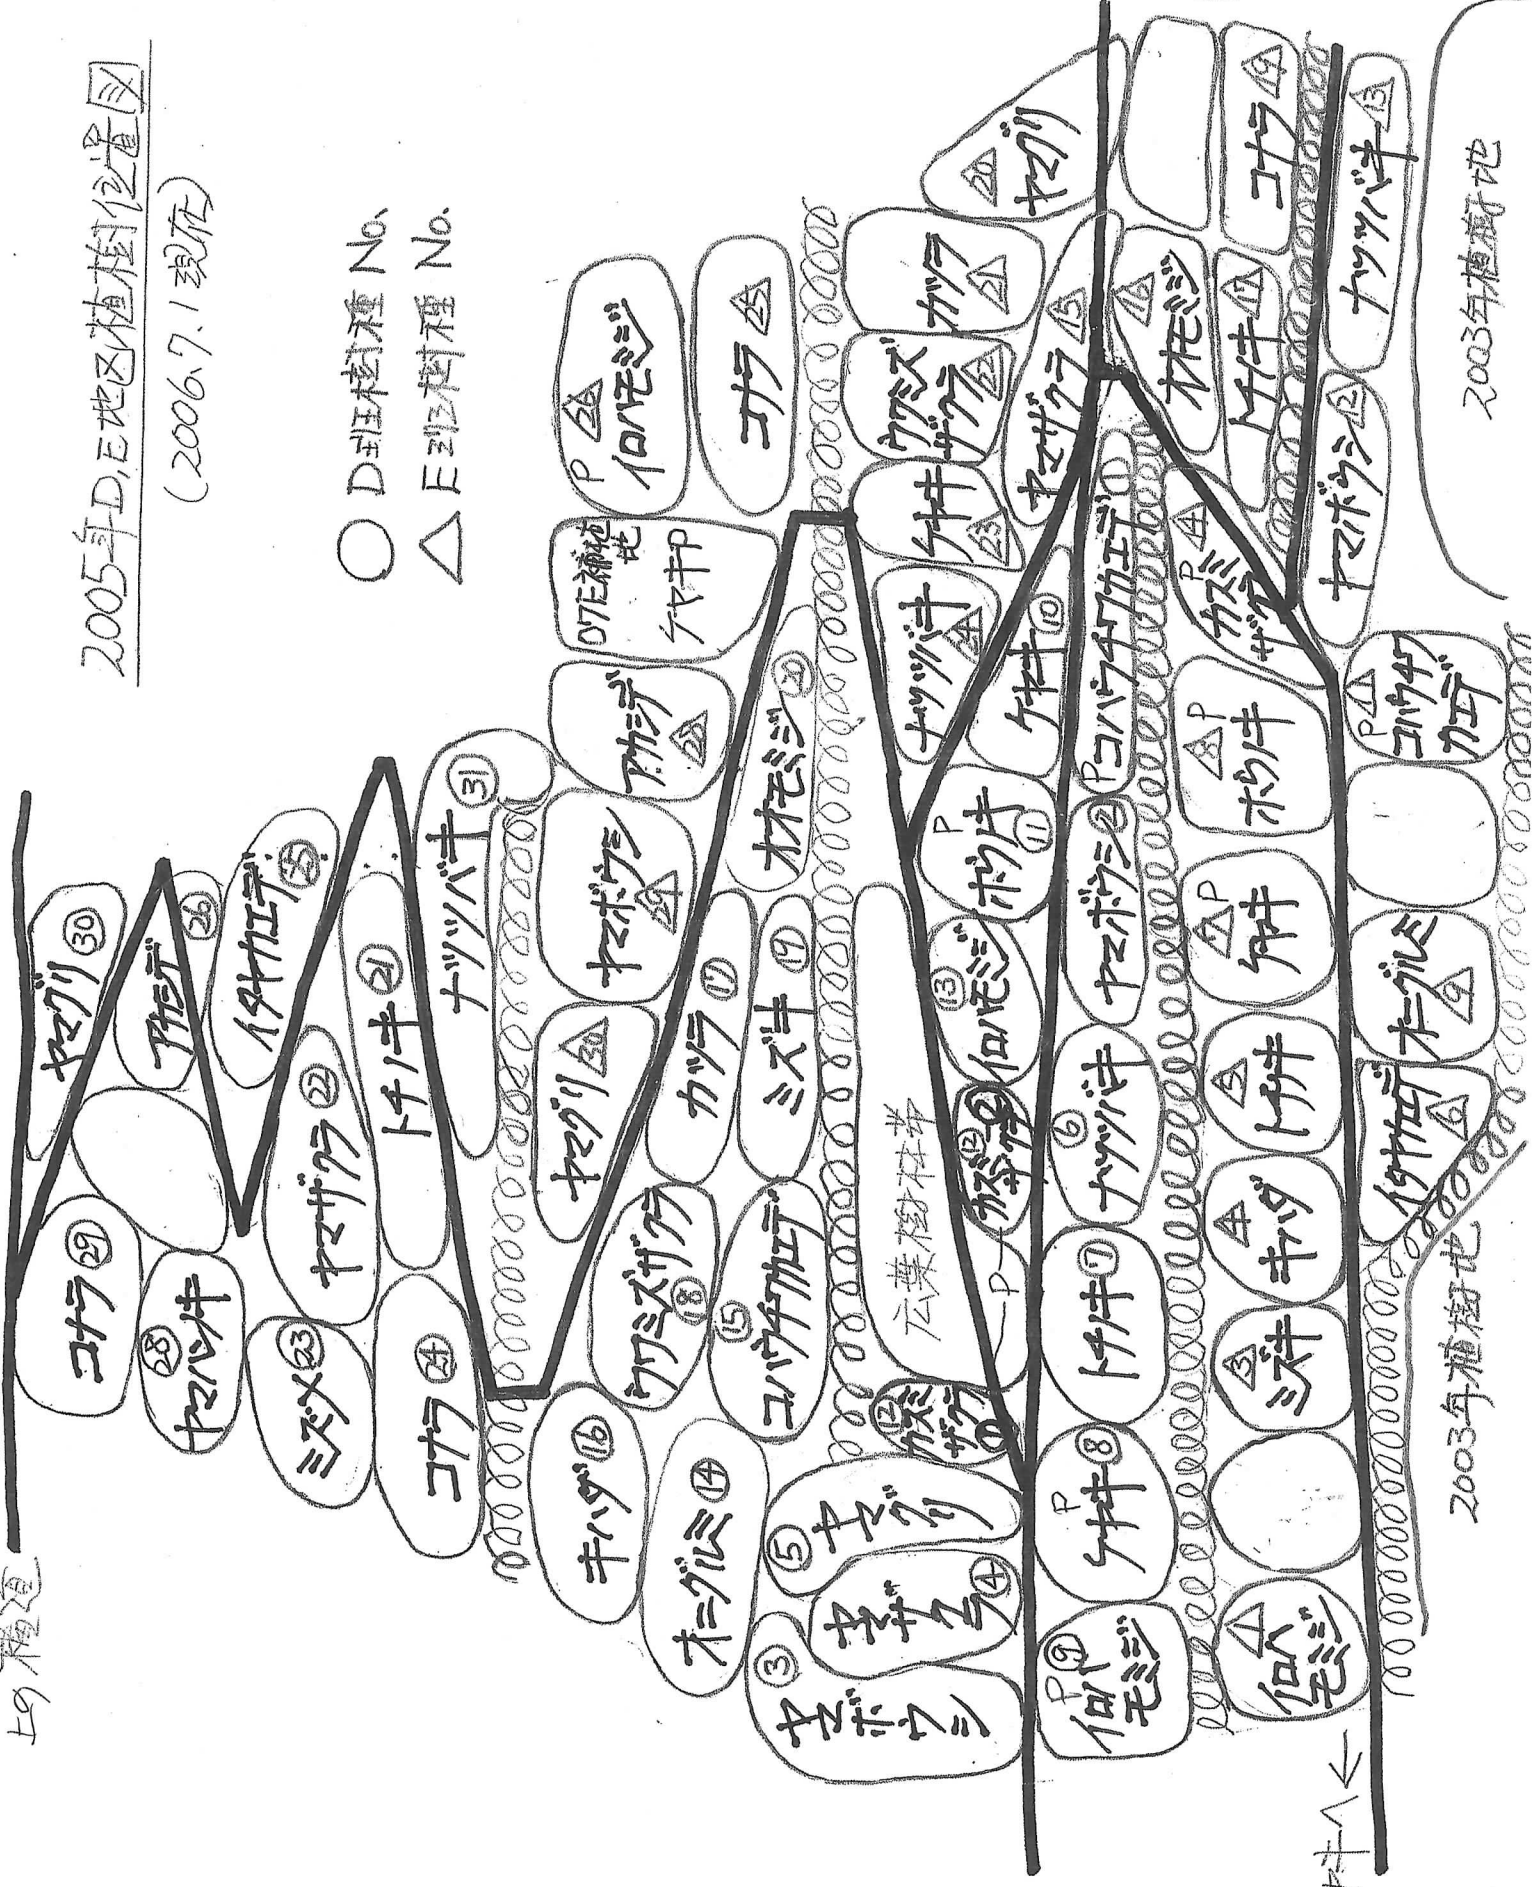 2005年D,E地区植樹位置図
(2006.7.1現在)
○ D班樹種 No.
△ E班樹種 No.
上の横道
ヤマグリ ㉚
アカシデ ㉖
イタヤカエデ ㉕
コナラ ㉙
ヤマハンノキ ㉘
ミズメ ㉓
ヤマザクラ ㉒
トチノキ ㉑
コナラ ㉔
ナツツバキ ㉛
P 26
イロハモミジ
コナラ 25
ケヤキP
アカシデ 28
ヤマボウシ 29
ヤマグリ 30
オオモミジ ⑳
カツラ ⑰
ミズキ ⑲
ウワミズザクラ ⑱
コハウチワカエデ ⑮
キハダ ⑯
オニグルミ ⑭
⑤ ヤマグリ
ヤマザクラ ④
③ ヤマボウシ
広葉樹林帯
P
⑫ カスミザクラ
⑫ カスミザクラ
⑬ イロハモミジ
P ホウノキ ⑪
ケヤキ ⑩
ナツツバキ 24
ケヤキ 23
ウワミズザクラ 22
カツラ 21
20 ヤマグリ
ヤマザクラ 15
P コハウチワカエデ ①
ヤマボウシ ②
⑥ ナツツバキ
トチノキ ⑦
P ケヤキ ⑧
P ⑨ イロハモミジ
オオモミジ 16
トチノキ 17
コナラ 19
ナツツバキ 13
ヤマボウシ 12
P カスミザクラ
8 P ホウノキ
7 P ケヤキ
5 トチノキ
4 キハダ
3 ミズキ
1 イロハモミジ
P コハウチワカエデ
オニグルミ 9
イタヤカエデ 6
2003年植樹地
2003年植樹地